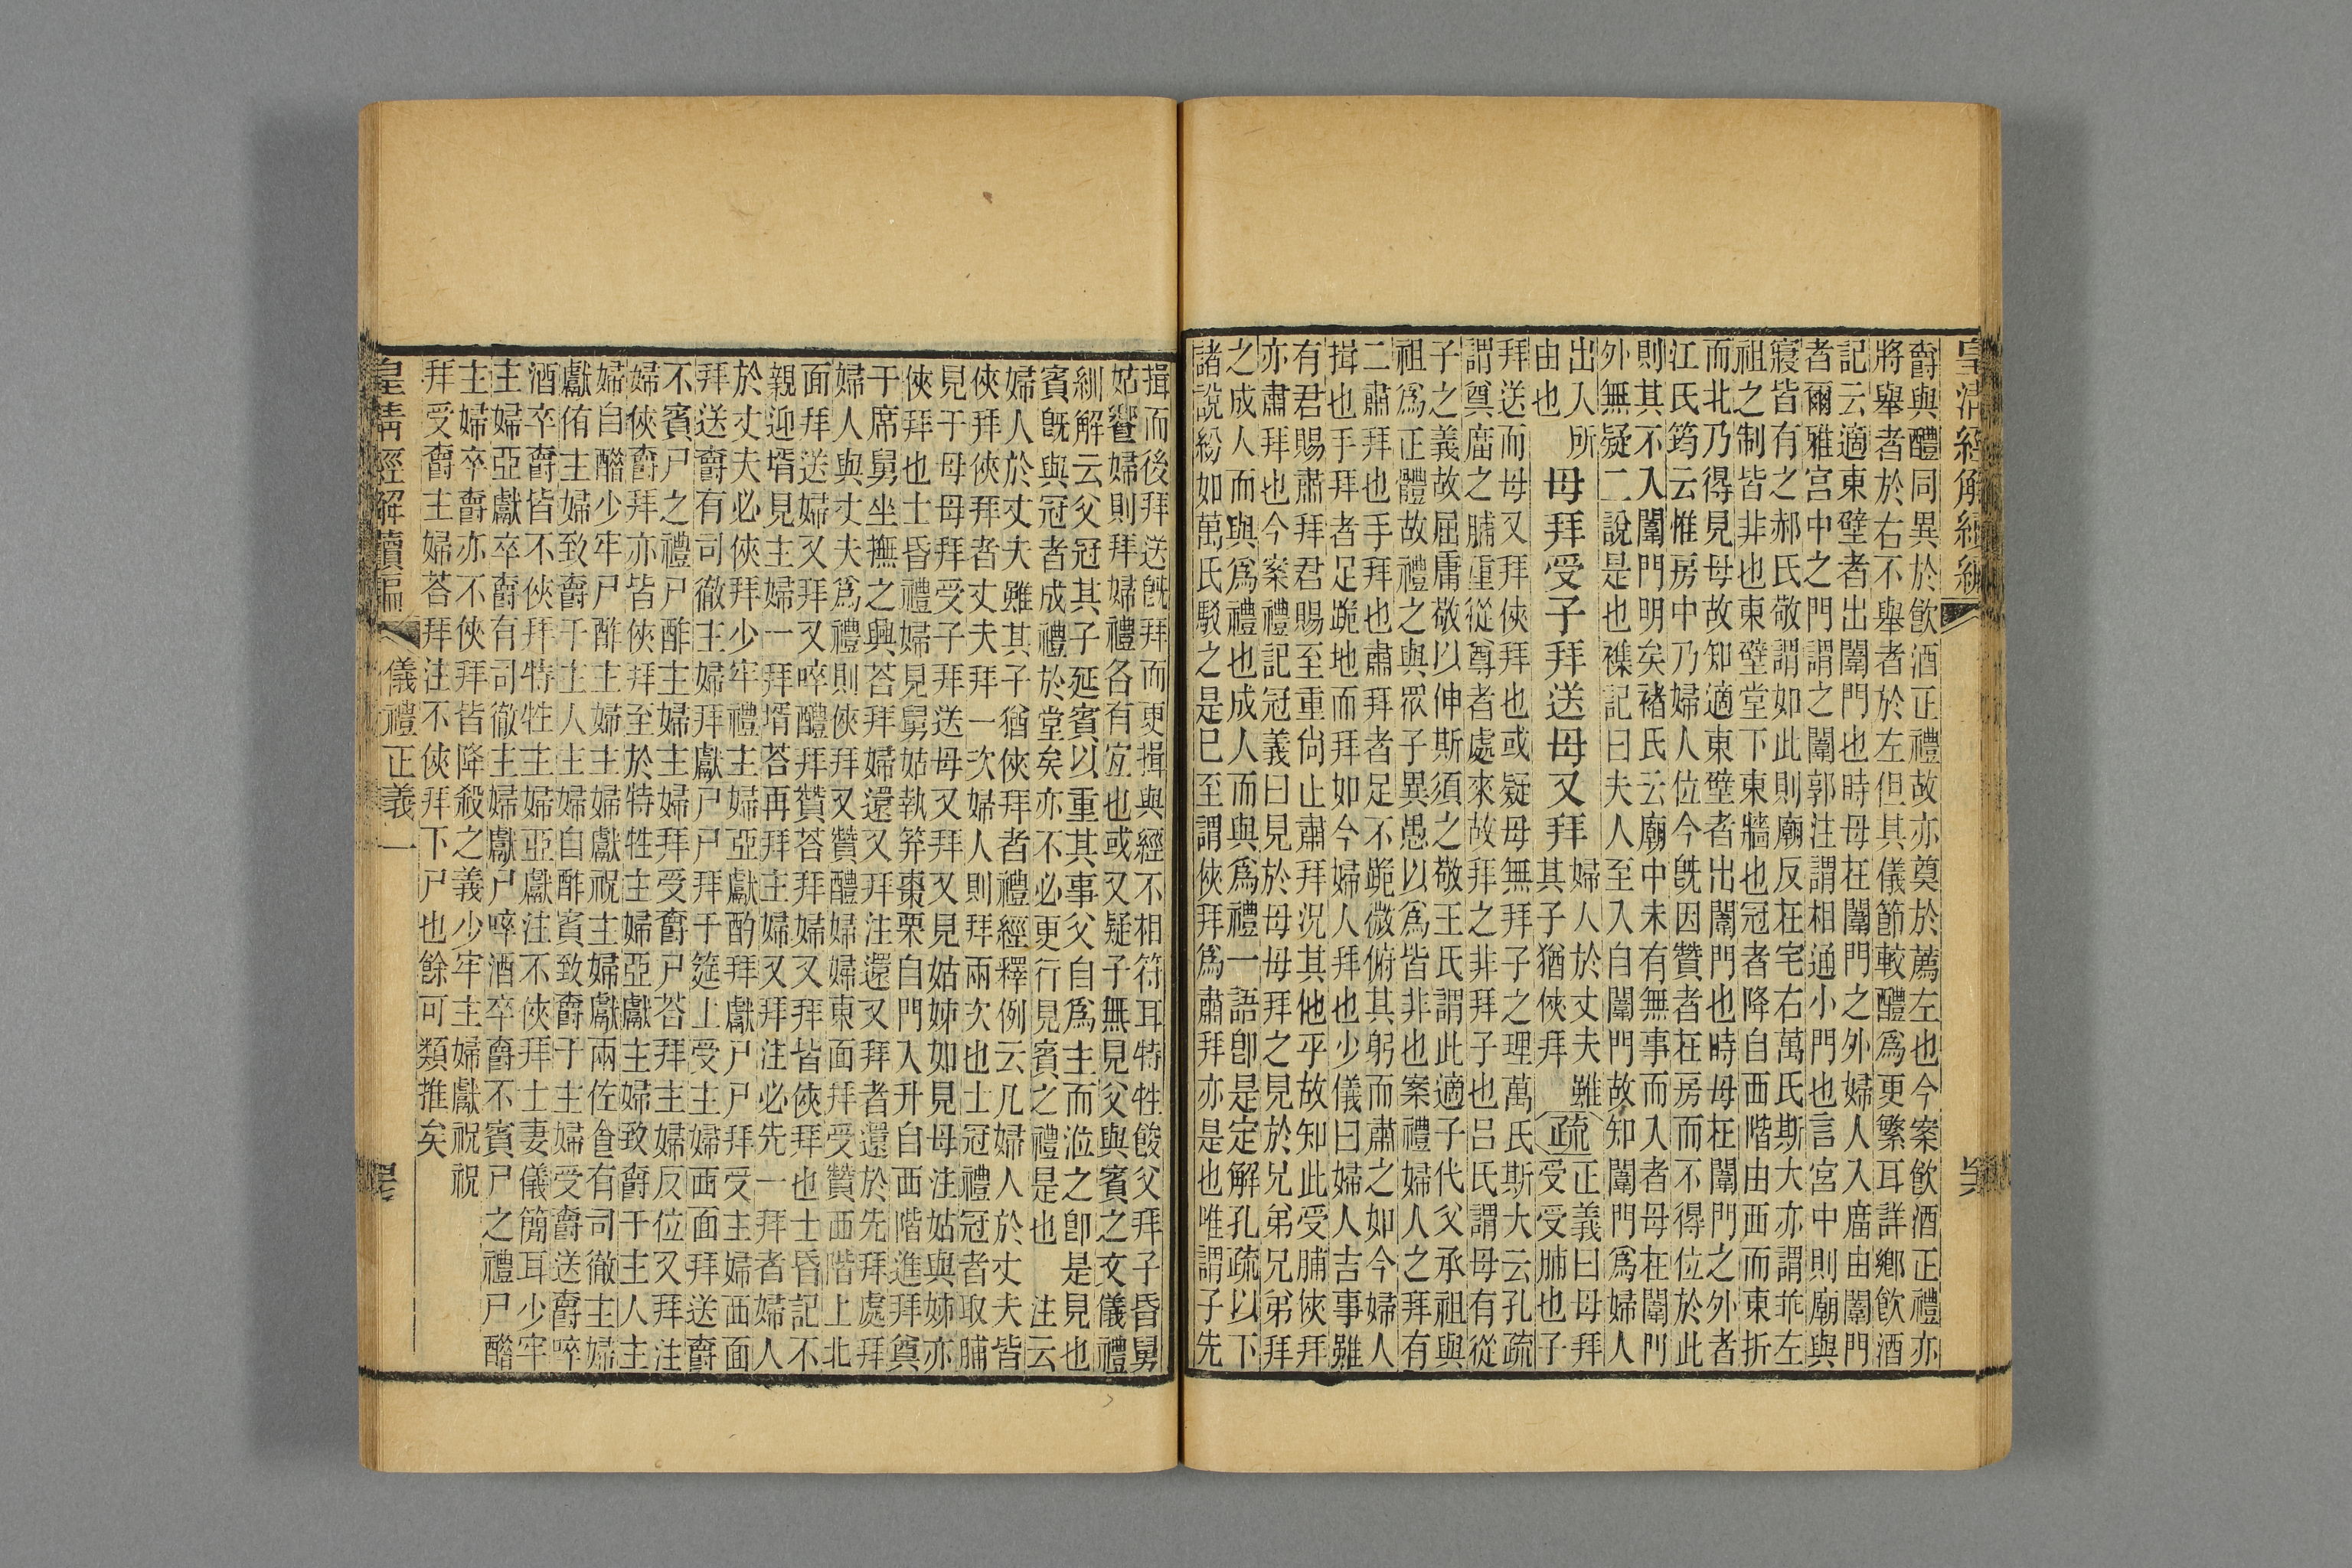 皇清經解續編
爵與醴同異於飮酒正禮故亦奠於薦左也今案飮酒正禮亦
將舉者於右不舉者於左但其儀節較醴爲更繁耳詳鄉飮酒
記云適東壁者出闈門也時母在闈門之外婦人入廟由闈門
者爾雅宮中之門謂之闈郭注謂相通小門也言宮中則廟與
寢皆有之郝氏敬謂如此則廟反在宅右萬氏斯大亦謂乖左
祖之制皆非也東壁堂下東牆也冠者降自西階由西而東折
而北乃得見母故知適東壁者出闈門也時母在闈門之外者
江氏筠云惟房中乃婦人位今旣因贊者在房而不得位於此
則其不入闈門明矣褚氏云廟中未有無事而入者母在闈門
外無疑二說是也襍記曰夫人至入自闈門故知闈門爲婦人
出入所由也 母拜受子拜送母又拜 婦人於丈夫雖其子猶俠拜 疏 正義曰母拜受受脯也子
拜送而母又拜俠拜也或疑母無拜子之理萬氏斯大云孔疏
謂奠廟之脯重從尊者處來故拜之非拜子也呂氏謂母有從
子之義故屈庸敬以伸斯須之敬王氏謂此適子代父承祖與
祖爲正體故禮之與眾子異愚以爲皆非也案禮婦人之拜有
二肅拜也手拜也肅拜者足不跪微俯其躬而肅之如今婦人
揖也手拜者足跪地而拜如今婦人拜也少儀曰婦人吉事雖
有君賜肅拜君賜至重尙止肅拜況其他乎故知此受脯俠拜
亦肅拜也今案禮記冠義曰見於母母拜之見於兄弟兄弟拜
之成人而與爲禮也成人而與爲禮一語卽是定解孔疏以下
諸說紛如萬氏駁之是已至謂俠拜爲肅拜亦是也唯謂子先
揖而後拜送旣拜而更揖與經不相符耳特牲餕父拜子昏舅
姑饗婦則拜婦禮各有宜也或又疑子無見父與賓之文儀禮
糿解云父冠其子延賓以重其事父自爲主而涖之卽是見也
賓旣與冠者成禮於堂矣亦不必更行見賓之禮是也 注云
婦人於丈夫雖其子猶俠拜者禮經釋例云凡婦人於丈夫皆
俠拜俠拜者丈夫拜一次婦人則拜兩次也士冠禮冠者取脯
見于母母拜受子拜送母又拜又見姑姊如見母注姑與姊亦
俠拜也士昏禮婦見舅姑執笲棗栗自門入升自西階進拜奠
于席舅坐撫之興荅拜婦還又拜注還又拜者還於先拜處拜
婦人與丈夫爲禮則俠拜又贊醴婦婦東面拜受贊西階上北
面拜送婦又拜又啐醴拜贊荅拜婦又拜皆俠拜也士昏記不
親迎壻見主婦一拜壻荅再拜主婦又拜注必先一拜者婦人
於丈夫必俠拜少牢禮主婦亞獻酌拜獻尸尸拜受主婦西面
拜送爵有司徹主婦拜獻尸尸拜于筵上受主婦西面拜送爵
不賓尸之禮尸酢主婦主婦拜受爵尸荅拜主婦反位又拜注
婦俠爵拜亦皆俠拜至於特牲主婦亞獻主婦致爵于主人主
婦自醋少牢尸酢主婦主婦獻祝主婦獻兩佐食有司徹主婦
獻侑主婦致爵于主人主婦自酢賓致爵于主婦受爵送爵啐
酒卒爵皆不俠拜特牲主婦亞獻注不俠拜士妻儀簡耳少牢
主婦亞獻卒爵有司徹主婦獻尸啐酒卒爵不賓尸之禮尸醋
主婦卒爵亦不俠拜皆降殺之義少牢主婦獻祝祝
拜受爵主婦荅拜注不俠拜下尸也餘可類推矣
皇清經解續編 儀禮正義一